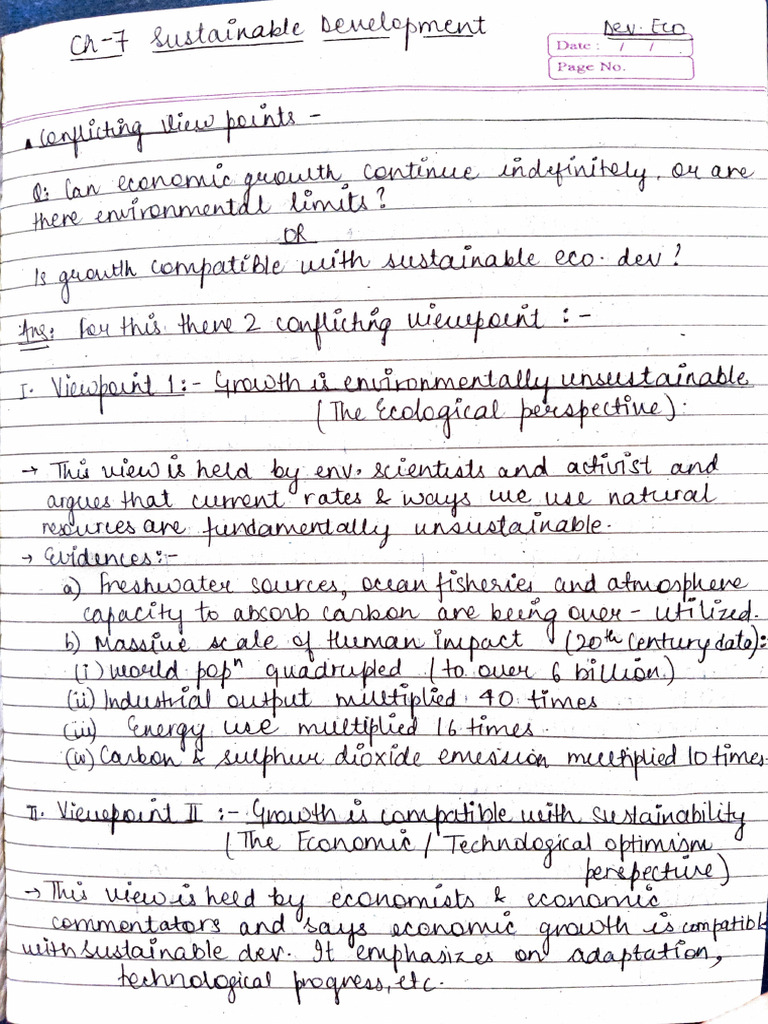 Ch-7 Sustainable Development
Dev. Eco
Date : / /
Page No.
Conflicting view points -
Q: Can economic growth continue indefinitely, or are
there environmental limits?
OR
Is growth compatible with sustainable eco. dev?
Ans: For this there 2 conflicting viewpoint :-
I. Viewpoint 1:- Growth is environmentally unsustainable
(The Ecological perspective).
→ This view is held by env. scientists and activist and
argues that current rates & ways we use natural
resources are fundamentally unsustainable.
→ Evidences:-
a) Freshwater sources, ocean fisheries and atmosphere
capacity to absorb carbon are being over-utilized.
b) Massive scale of Human impact (20th Century data):
(i) World popn quadrupled (to over 6 billion.)
(ii) Industrial output multiplied 40 times
(iii) Energy use multiplied 16 times.
(iv) Carbon & sulphur dioxide emession multiplied 10 times.
II. Viewpoint II :- Growth is compatible with sustainability
(The Economic / Technological optimism
perspective)
→ This view is held by economists & economic
commentators and says economic growth is compatible
with sustainable dev. It emphasizes on adaptation,
technological progress, etc.